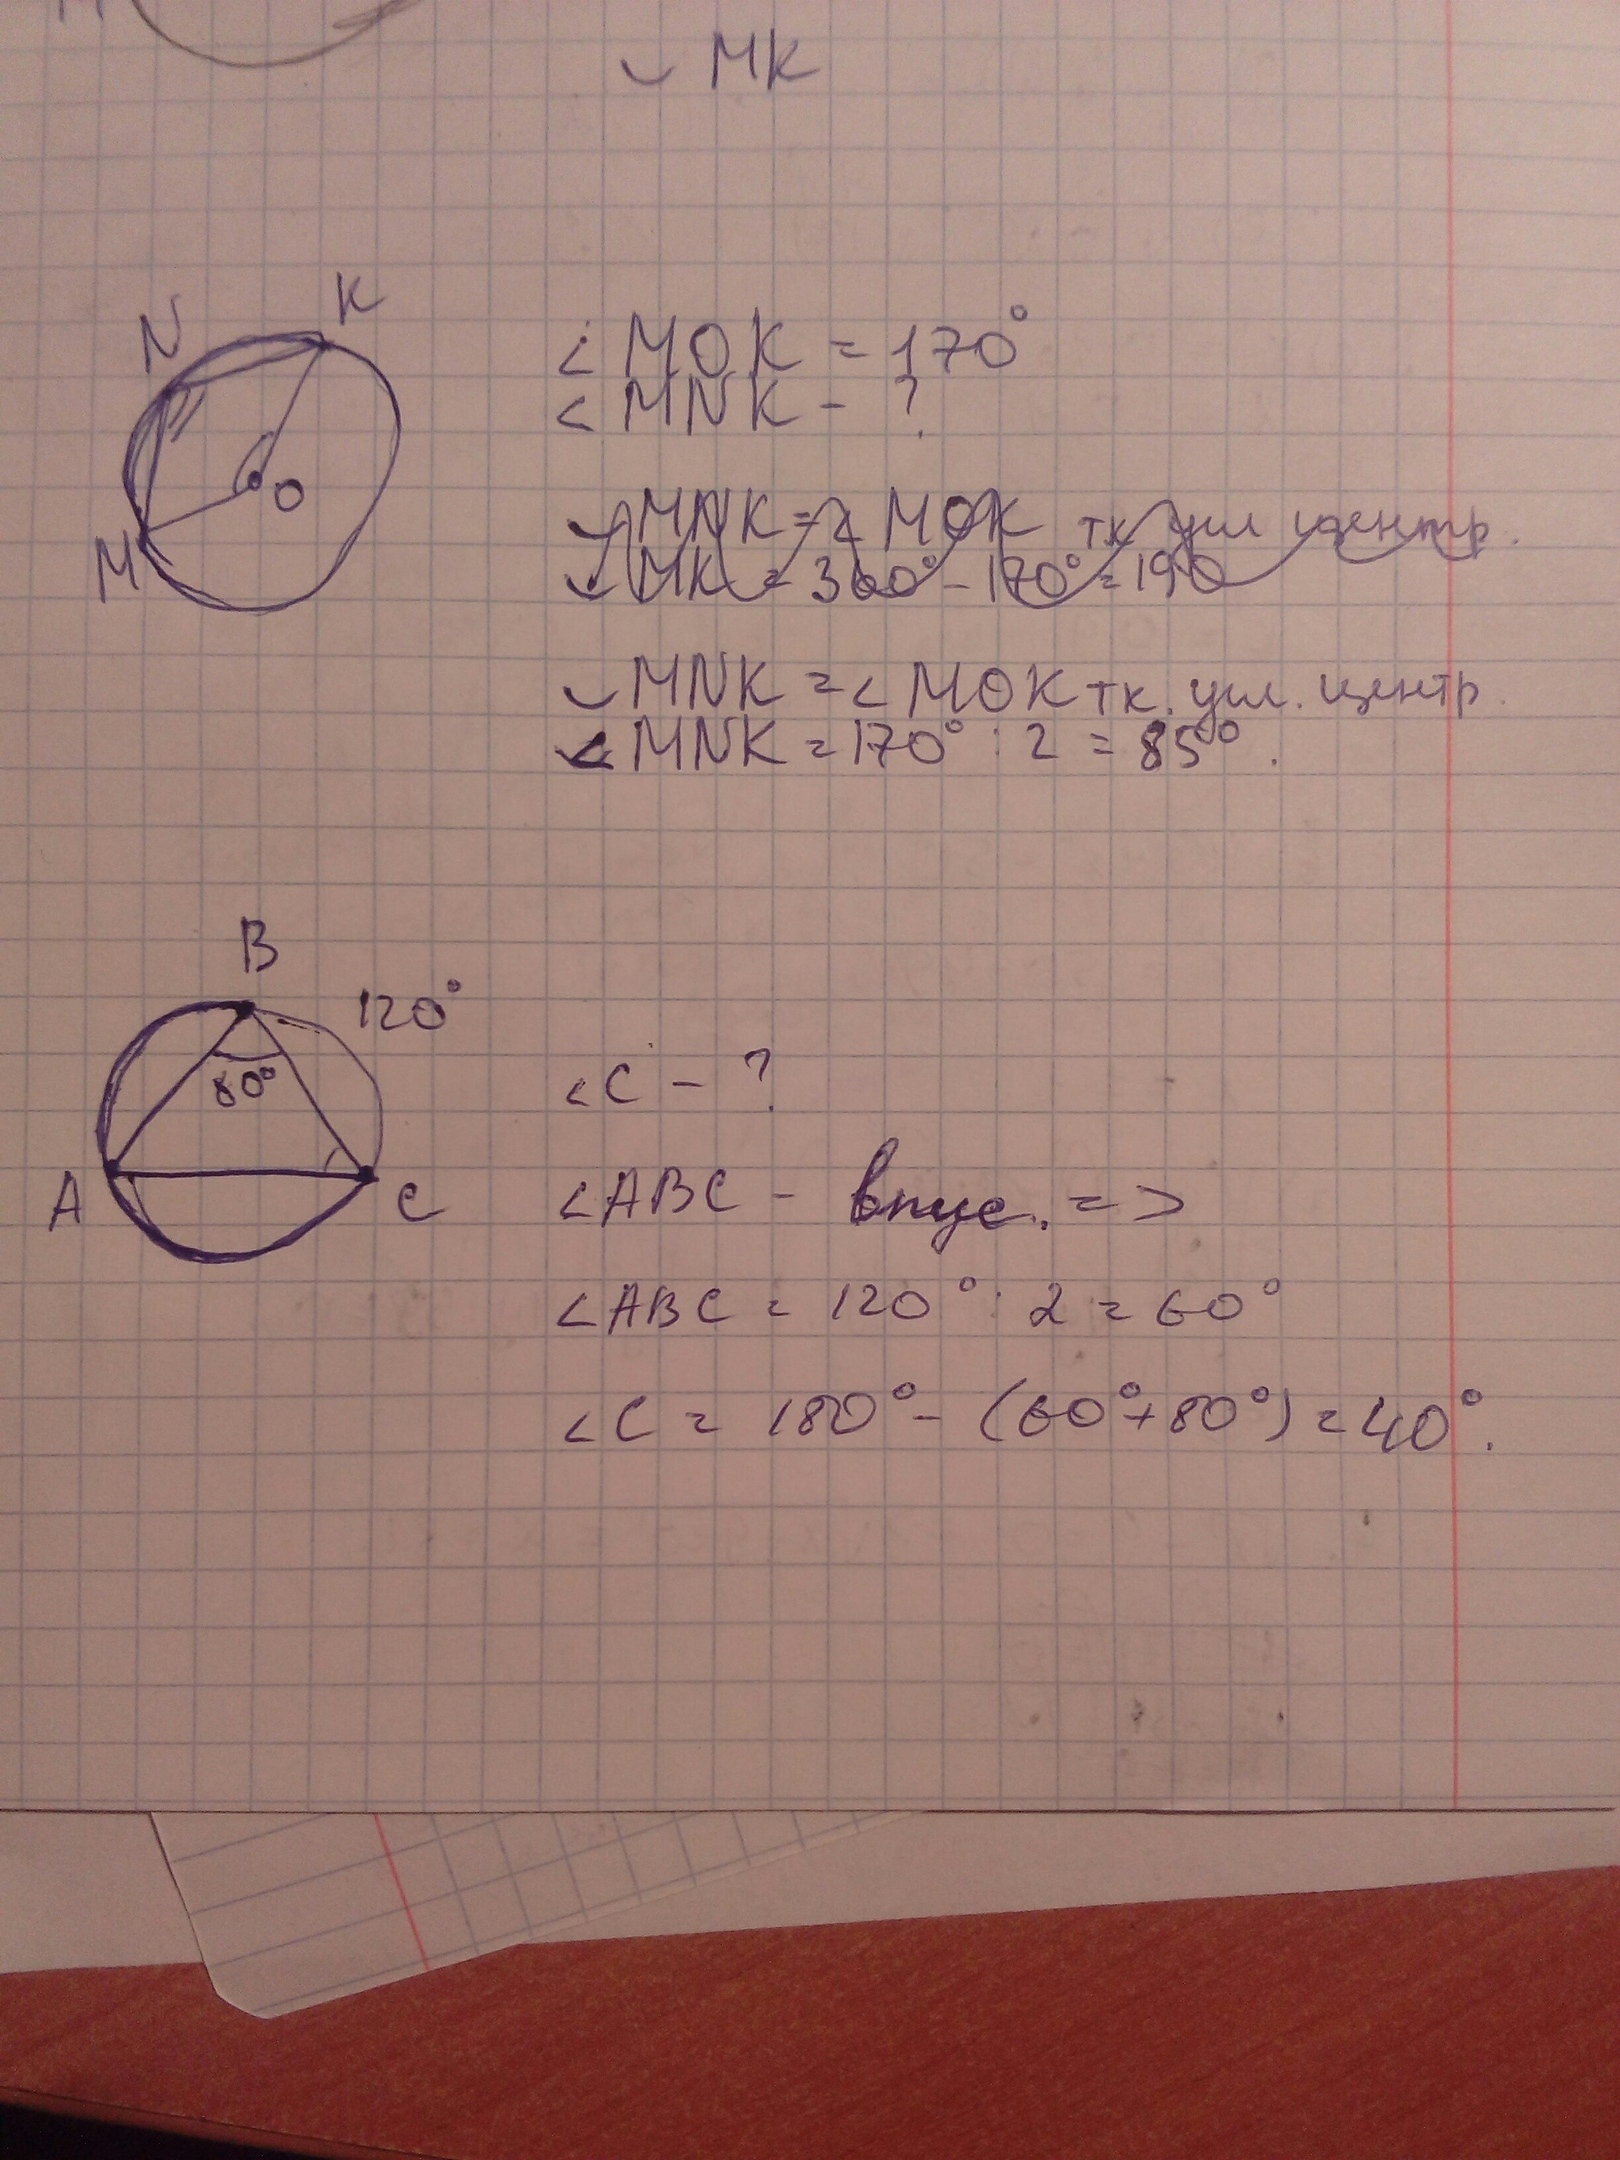 ◡ MK
N
K
O
M
∠ MOK = 170°
< MNK - ?
◡ MNK = 2 MOK тк угл центр.
◡ MK = 360° - 170° = 190
◡ MNK = < MOK тк. угл. центр.
< MNK = 170° : 2 = 85°.
B
120°
80°
A
C
<C - ?
<ABC - впис. =>
<ABC = 120° : 2 = 60°
<C = 180° - (60°+80°) = 40°.